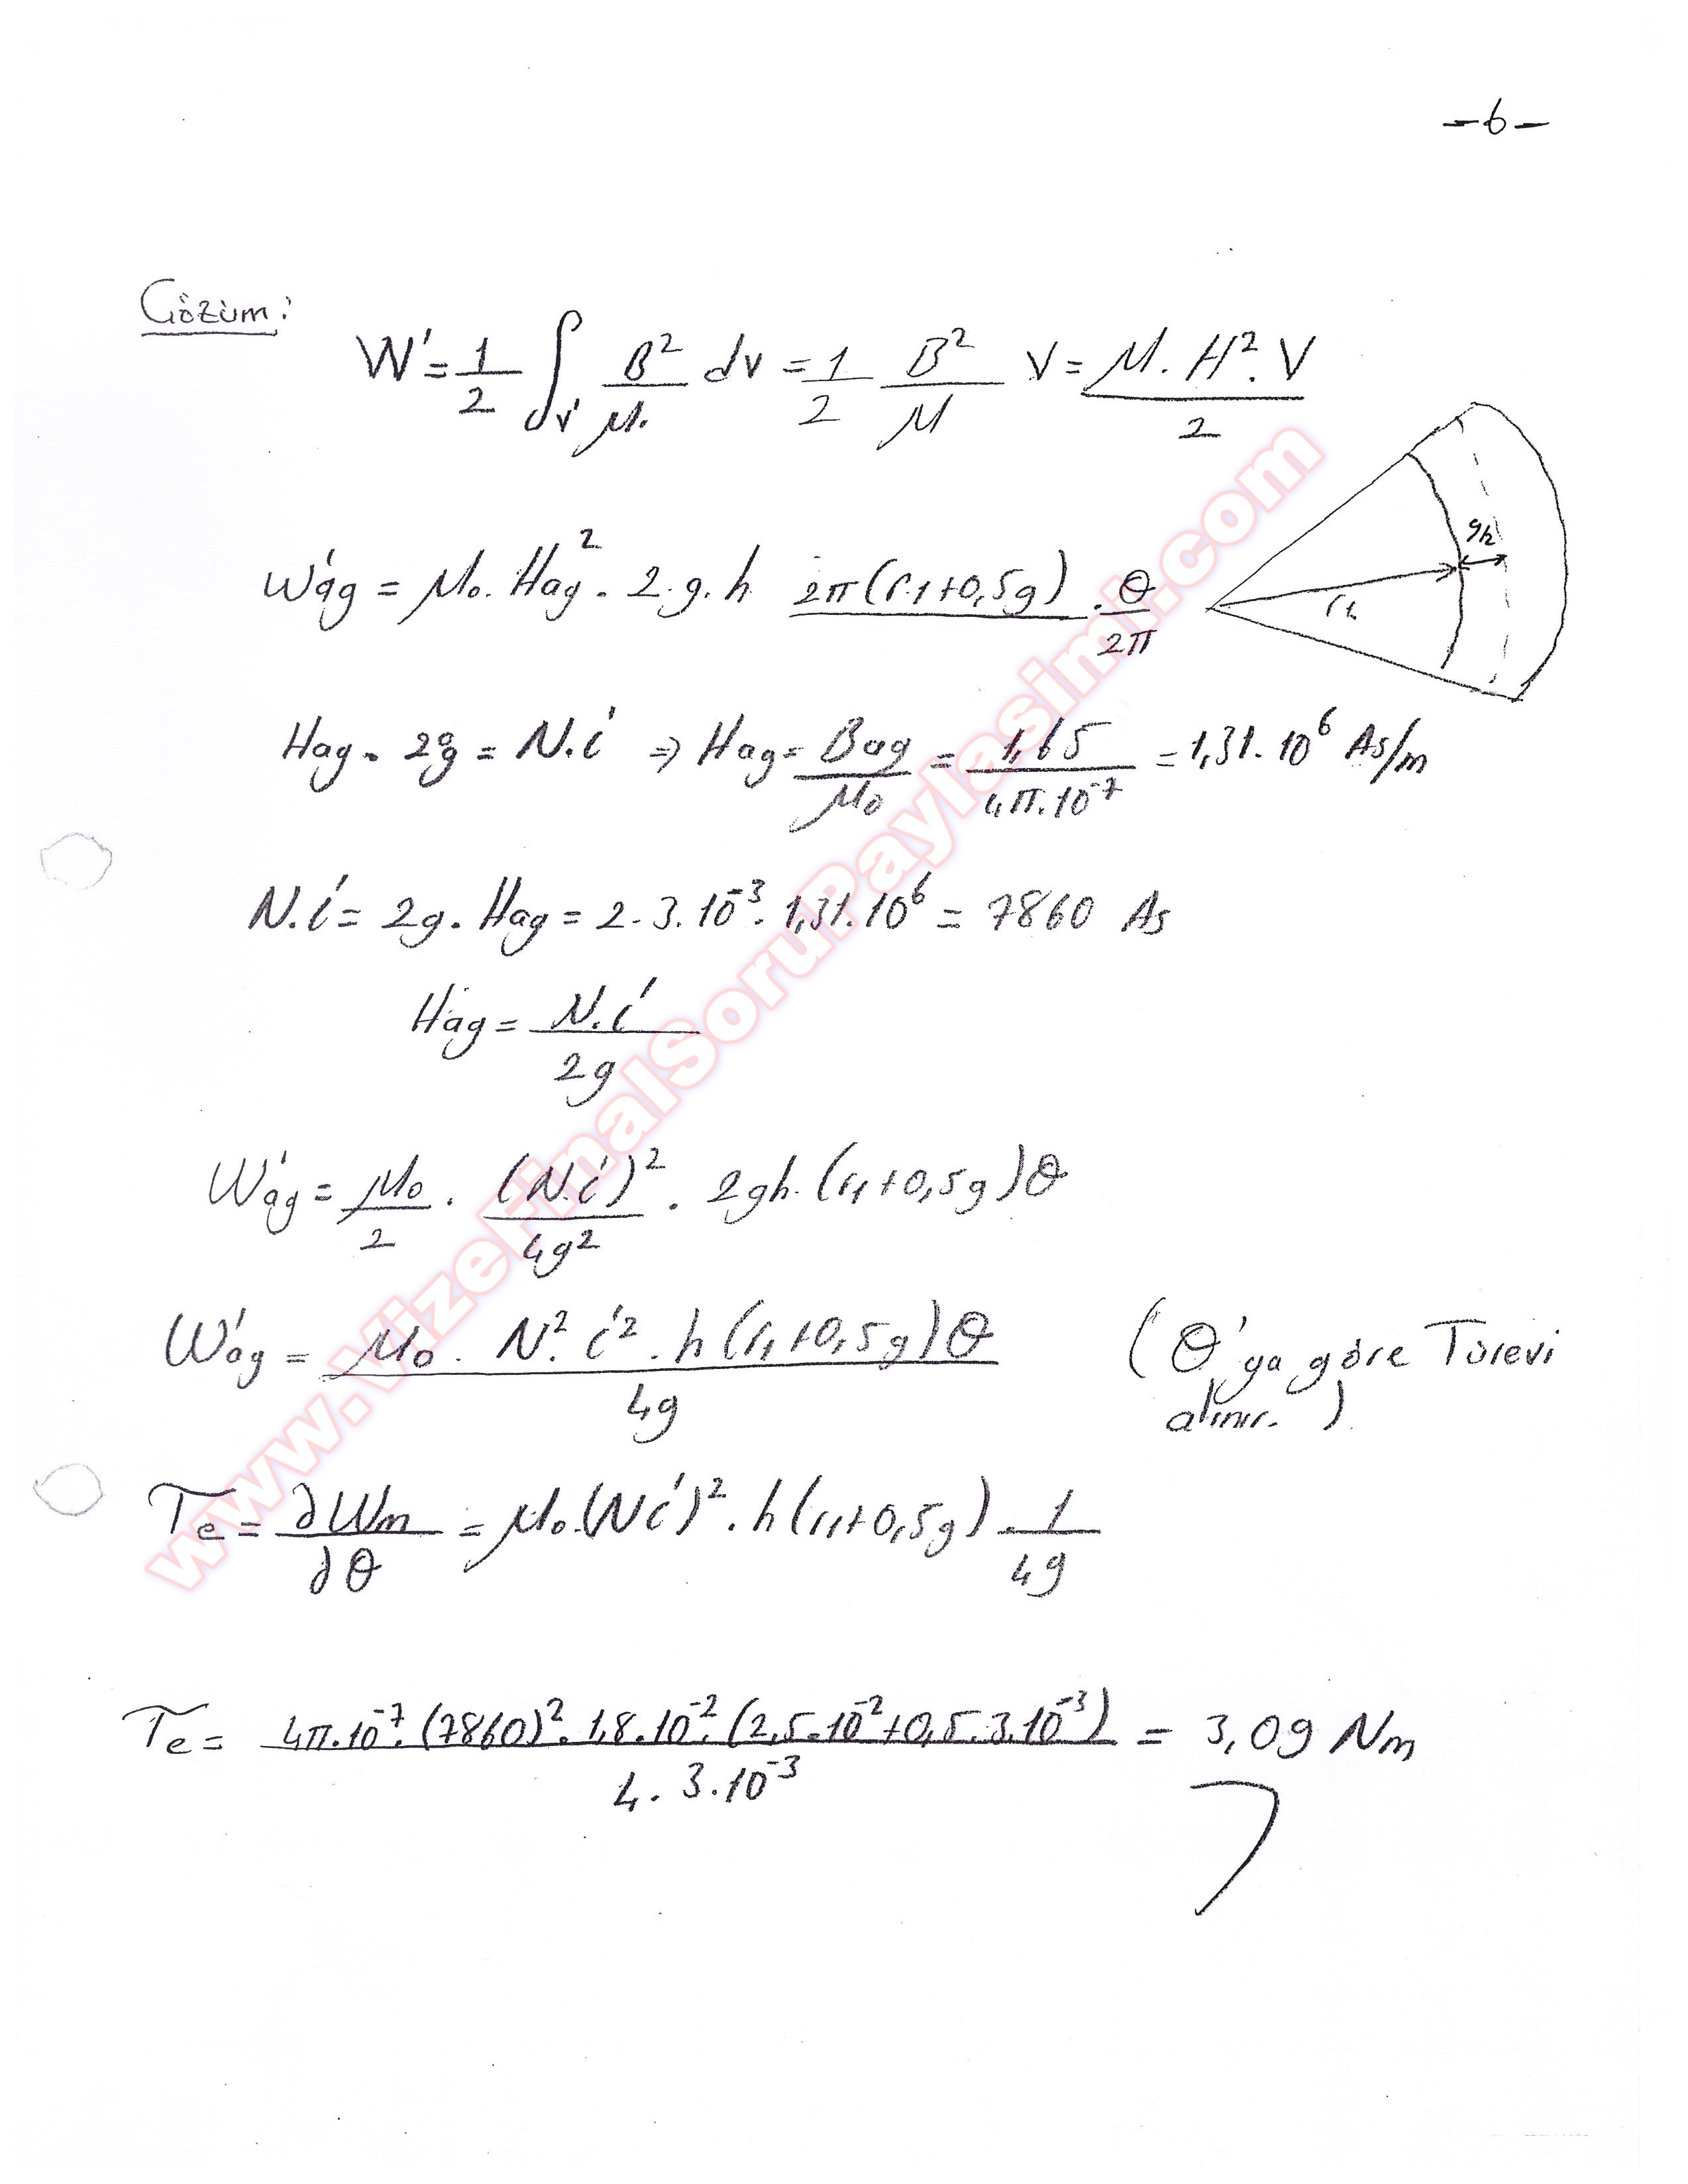 -6-
Çözüm:
W' = 1/2 ∫v' B²/μ. dv = 1/2 B²/μ V = μ.H².V/2
W'ag = μ₀.Hag².2.g.h 2π(r1+0,5g) . θ/2π
g/2
r1
Hag.2g = N.i ⇒ Hag = Bag/μ₀ = 1,65/4π.10⁻⁷ = 1,31.10⁶ As/m
N.i = 2g.Hag = 2.3.10⁻³.1,31.10⁶ = 7860 As
Hag = N.i/2g
W'ag = μ₀/2 . (N.i)²/4g² . 2gh.(r1+0,5g)θ
W'ag = μ₀.N².i².h(r1+0,5g)θ/4g (θ'ya göre Türevi
alınır.)
Te = ∂Wm/∂θ = μ₀.(Ni)².h(r1+0,5g).1/4g
Te = 4π.10⁻⁷.(7860)².1,8.10⁻².(2,5.10⁻²+0,5.3.10⁻³)/4.3.10⁻³ = 3,09 Nm
www.VizeFinalSoruPaylasimi.com